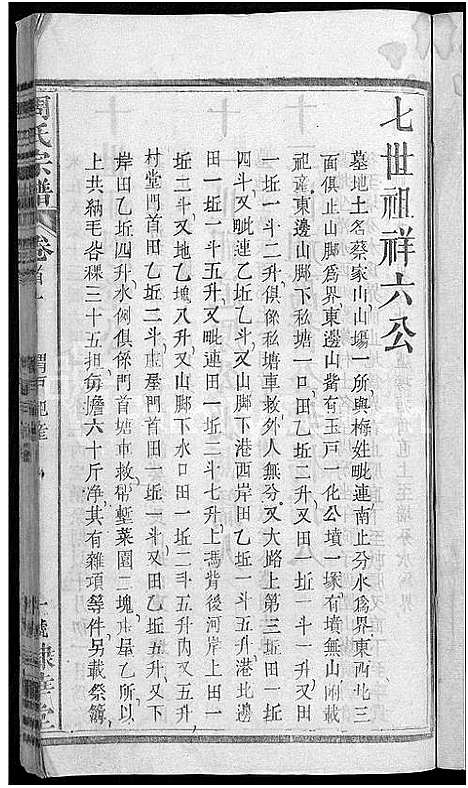 七世祖祥六公
墓地土名蔡家山山塲一所與梅姓毗連南止分水爲界東西北三
面俱止山脚爲界東邊山嘴有玉戸一化公墳一塚有墳無山附載
祀產東邊山脚下私塘一口田乙坵二升又田一坵一斗一升又田
一坵一斗二升俱係私塘車救外人無分又大路上第三坵田一坵
四斗又毗連乙坵乙斗又山下港西岸田乙坵一斗五升港北邊
田一坵一斗五升又毗連田一坵二斗七升上馮背後河岸上田一
坵二斗又地乙塊八升又山脚下水口田一坵二斗五升田一坵五升
村堂門首田乙坵二斗 屋門首田一坵一斗又田乙坵五升又下
岸田乙坵四升水例俱係門首塘車救 塹菜園二塊 屋乙所以
上共納毛谷稞三十五担每擔六十斤净其有雜項等件另載祭簿
周氏宗譜
卷首